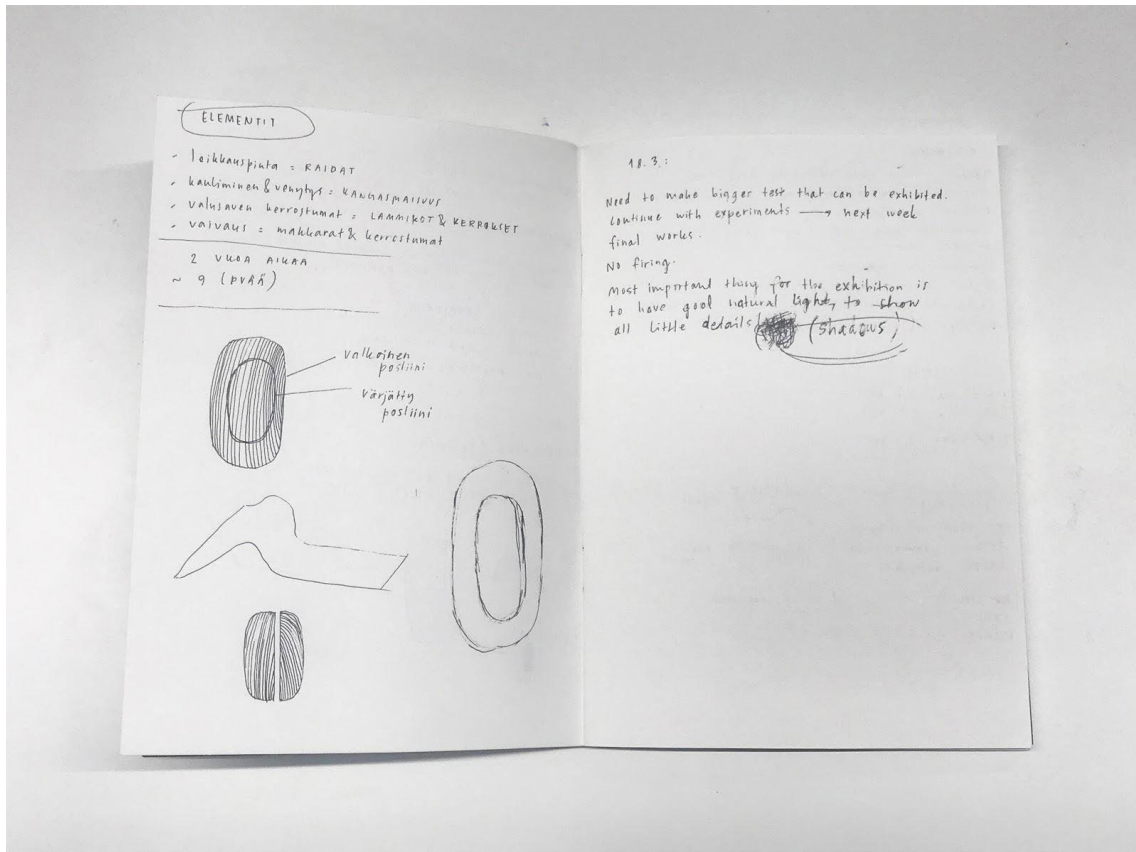 ELEMENTIT
- leikkauspinta = RAIDAT
- kauliminen & venytys = KANGASMAISUUS
- valusaven kerrostumat = LAMMIKOT & KERROKSET
- vaivaus = makkarat & kerrostumat
2 VKOA AIKAA
~ 9 (PVÄÄ)
valkoinen
posliini
värjätty
posliini
18.3.:
Need to make bigger test that can be exhibited.
Continue with experiments → next week
final works.
No firing.
Most important thing for the exhibition is
to have good natural light, to show
all little details! (shadows)